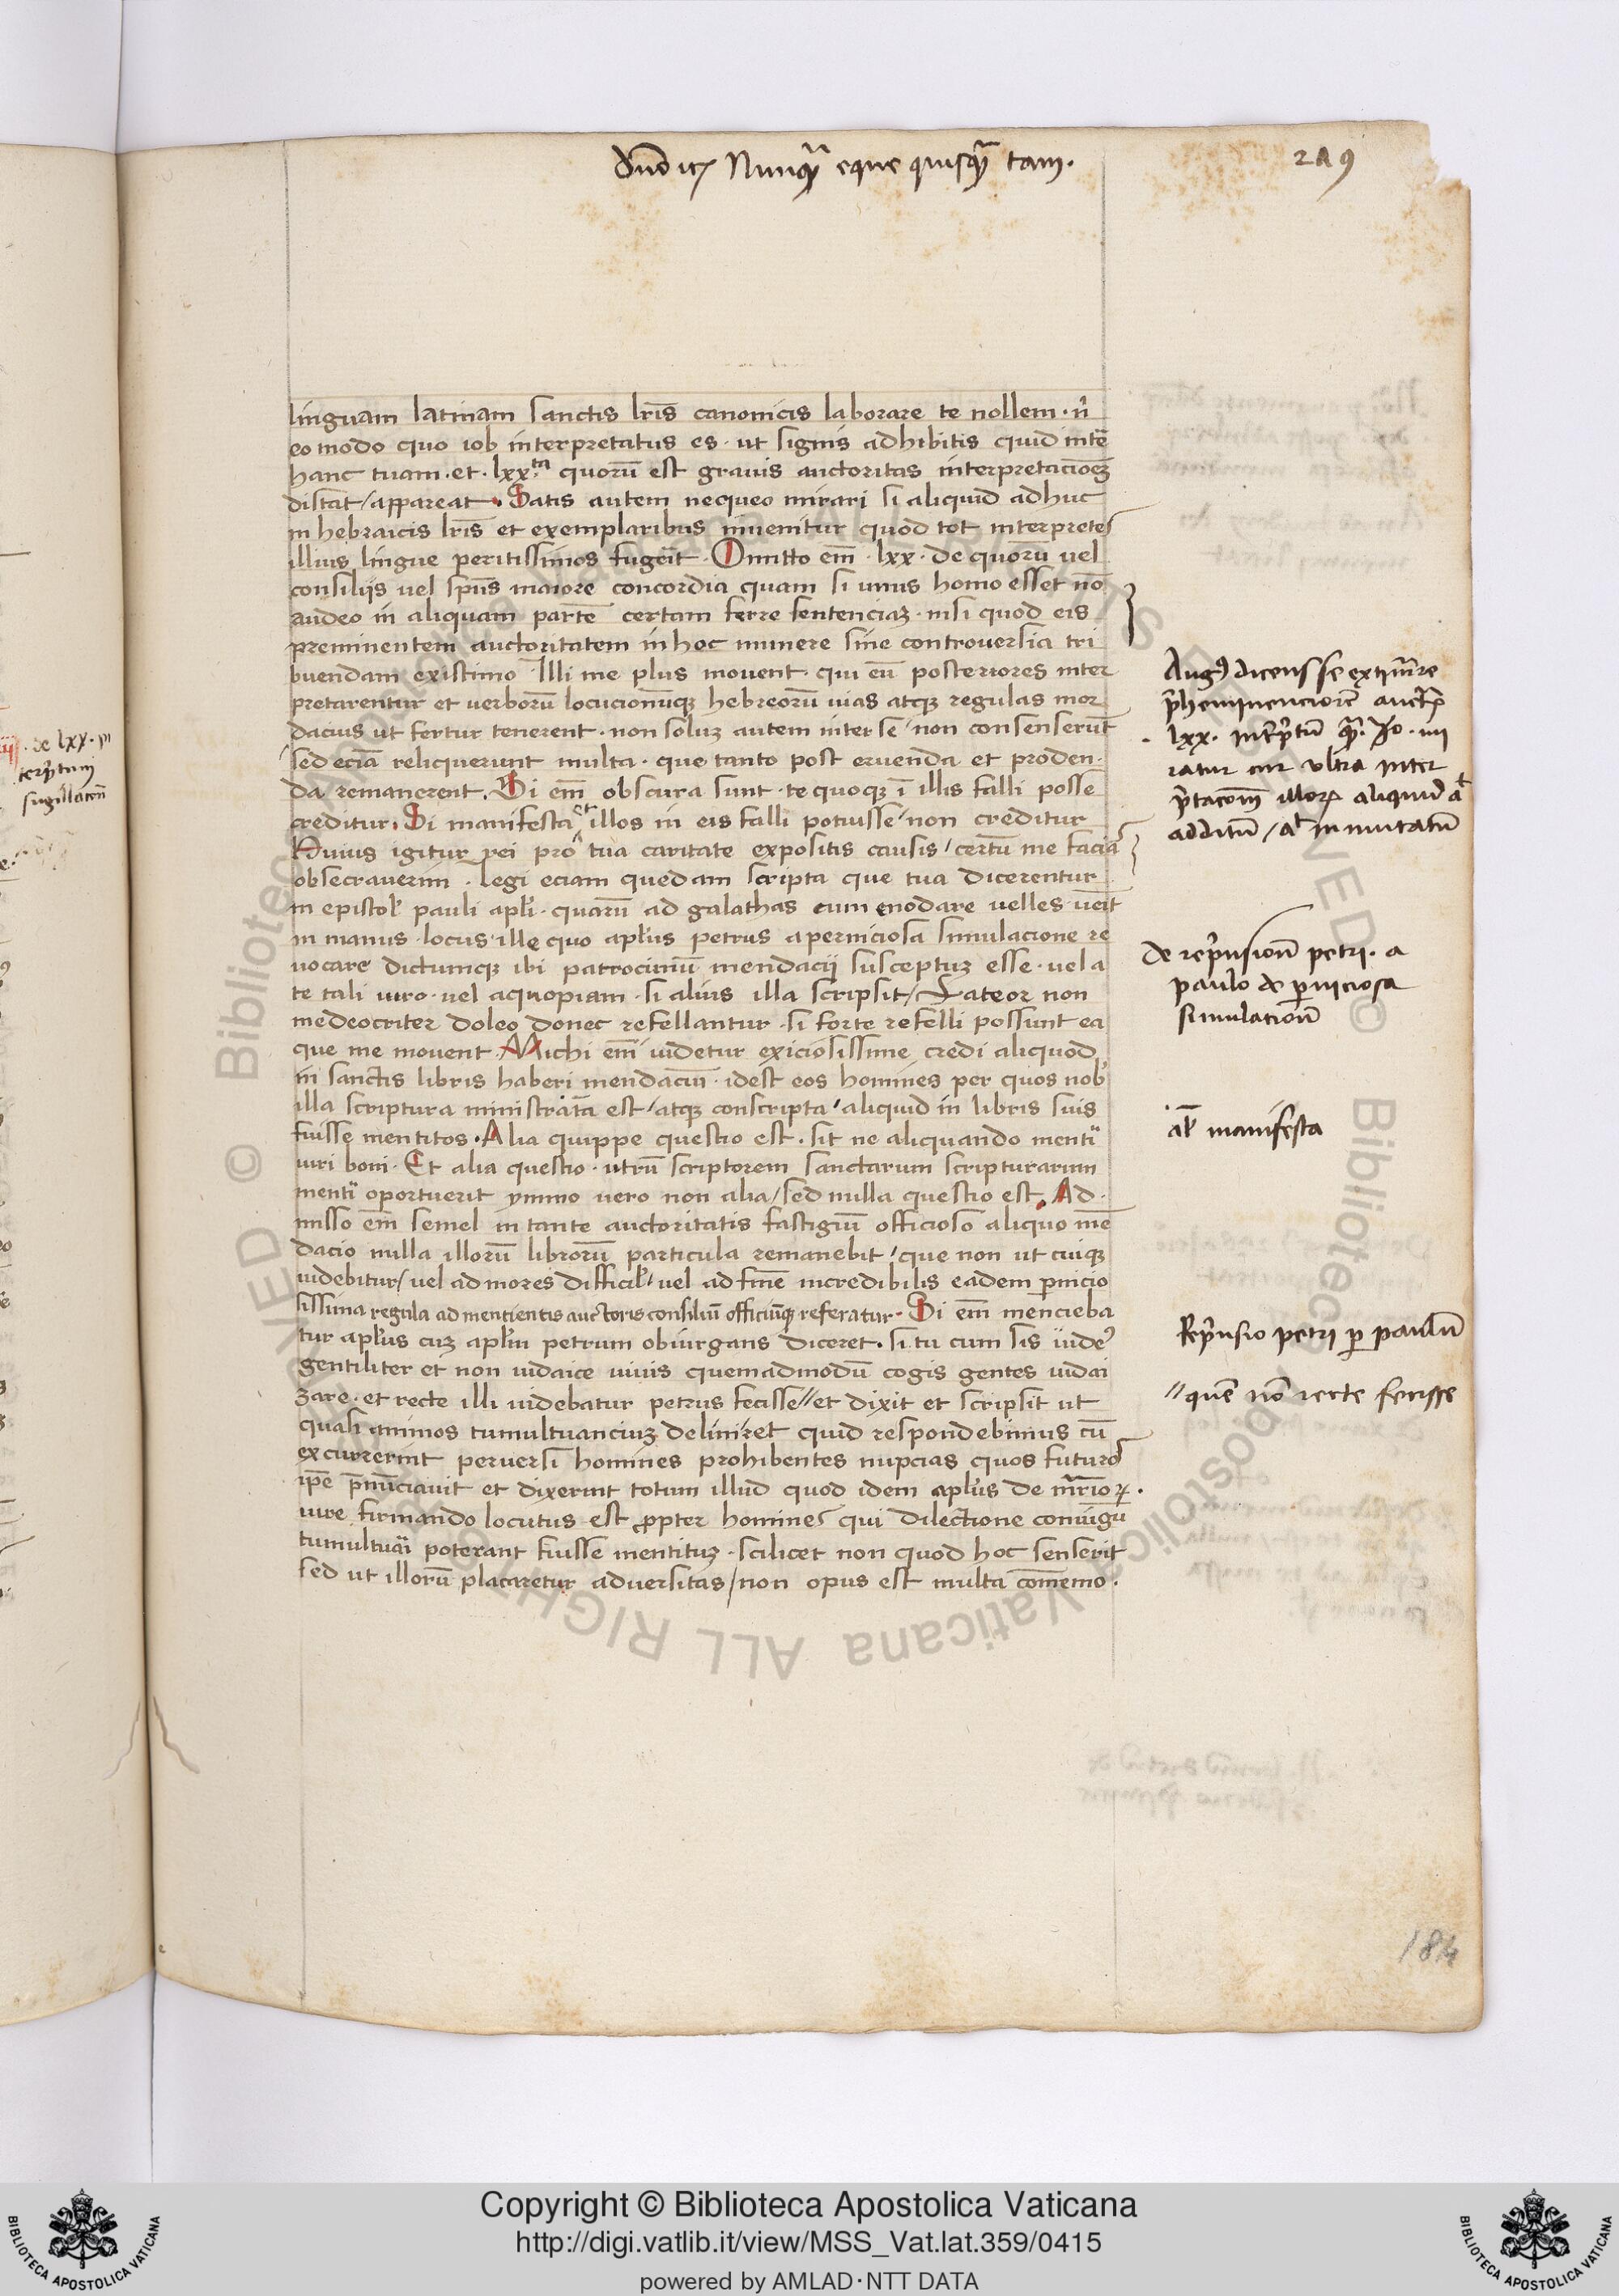 Nunqᷓ eque quisqᷓ tam.
249
linguam latinam sanctis lrīs canonicis laborare te nollem · nͥ
eo modo quo iob interpretatus es · ut signis adhibitis quid intē
hanc tuam · et · lxxᵗᵃ quorū est gravis auctoritas interpretacioēꝫ
distat / appareat. Satis autem nequeo mirari si aliquid adhuc
in hebraicis lrīs et exemplaribus invenitur quod tot interpretes
illius lingue peritissimos fugerit · Omitto em̄ · lxx · de quorū vel
consilijs vel spūs maiore concordia quam si unus homo esset nō
audeo in aliquam partē certam ferre sentenciaꝫ · nisi quod eis
preminentem auctoritatem in hoc munere sine controversia tri
buendam existimo Illi me plus movent · qui cū posteriores inter
pretarentur et verborū locucionumqꝫ hebreorū vias atqꝫ regulas mor
dacius ut fertur tenerent · non soluꝫ autem inter se / non consenserūt
sed eciā reliquerunt multa · que tanto post eruenda et proden ·
da remanerent. Si em̄ obscura sunt · te quoqꝫ ī illis falli posse
creditur. Si manifesta illos in eis falli potuisse / non creditur
Huius igitur rei pro tua caritate expositis causis / certū me faciā
obsecraverim · legi eciam quedam scripta que tua dicerentur
in epistol̓ pauli apl̓i · quarū ad galathas cum enodare velles · venīt
in manus · locus ille quo apl̓us petrus a perniciosa simulacione re
vocare dictumqꝫ ibi patrociniū mendacij susceptuꝫ esse · vel a
te tali viro · vel a quopiam · si alius illa scripsit / Fateor non
medeocriter doleo donec refellantur · si forte refelli possunt ea
que me movent. Michi em̄ videtur exiciosissime credi aliquod
in sanctis libris haberi mendaciū · idest eos homines per quos nob̓
illa scriptura ministrata est / atqꝫ conscripta / aliquid in libris suis
fuisse mentitos · Alia quippe questio est · sit ne aliquando mentiͥ
viri boni · Et alia questio · utrū scriptorem sanctarum scripturarum
mentiͥ oportuerit ymmo vero non alia / sed nulla questio est. Ad ·
misso em̄ semel in tante auctoritatis fastigiū officioso aliquo mē
dacio nulla illorū librorū particula remanebit / que non ut cuiqꝫ
videbitur / vel ad mores difficil̓ / vel ad fidē incredibilis eadem pnicio
sissima regula ad mentientis auctoris consiliū officiūqꝫ referatur · Si em̄ mencieba
tur apl̓us cuꝫ apl̓m petrum obiurgans diceret · si tu cum sis iudeꝰ
gentiliter et non iudaice vivis quemadmodū cogis gentes iudai
zare · et recte illi videbatur petrus fecisse // et dixit et scripsit ut
quasi animos tumultuanciuꝫ deliniret quid respondebimus cū
excurrerint perversi homines prohibentes nupcias quos futuros
ipē p̄nūciavit et dixerint totum illud quod idem apl̓us de mrīoꝝ ·
iure firmando locutus est ꝓpter homines qui dilectione coniugū
tumultuāi poterant fuisse mentituꝫ · scilicet non quod hoc senserit
sed ut illorū placaretur adversitas / non opus est multa com̄emo ·
Augꝰ dicens se extimāre
p̄heminenciorē auctēꝫ
· lxx · int̄p̄tū qᷓ · Jo · mi
ratur cur ultra inter
p̄tacōm̄ illoꝝ aliquid aᵗ
additū / aᵗ inmutatū
de rep̄nsionē petri · a
paulo de pniciosa
simulacionē
al̓ manifesta
Rep̄nsio petri p paulū
// quē nō recte fecisse
· de lxx · in
terp̄tum
sugillacōn
184
Copyright © Biblioteca Apostolica Vaticana
http://digi.vatlib.it/view/MSS_Vat.lat.359/0415
powered by AMLAD·NTT DATA
BIBLIOTECA APOSTOLICA VATICANA
BIBLIOTECA APOSTOLICA VATICANA
© Biblioteca Apostolica Vaticana ALL RIGHTS RESERVED